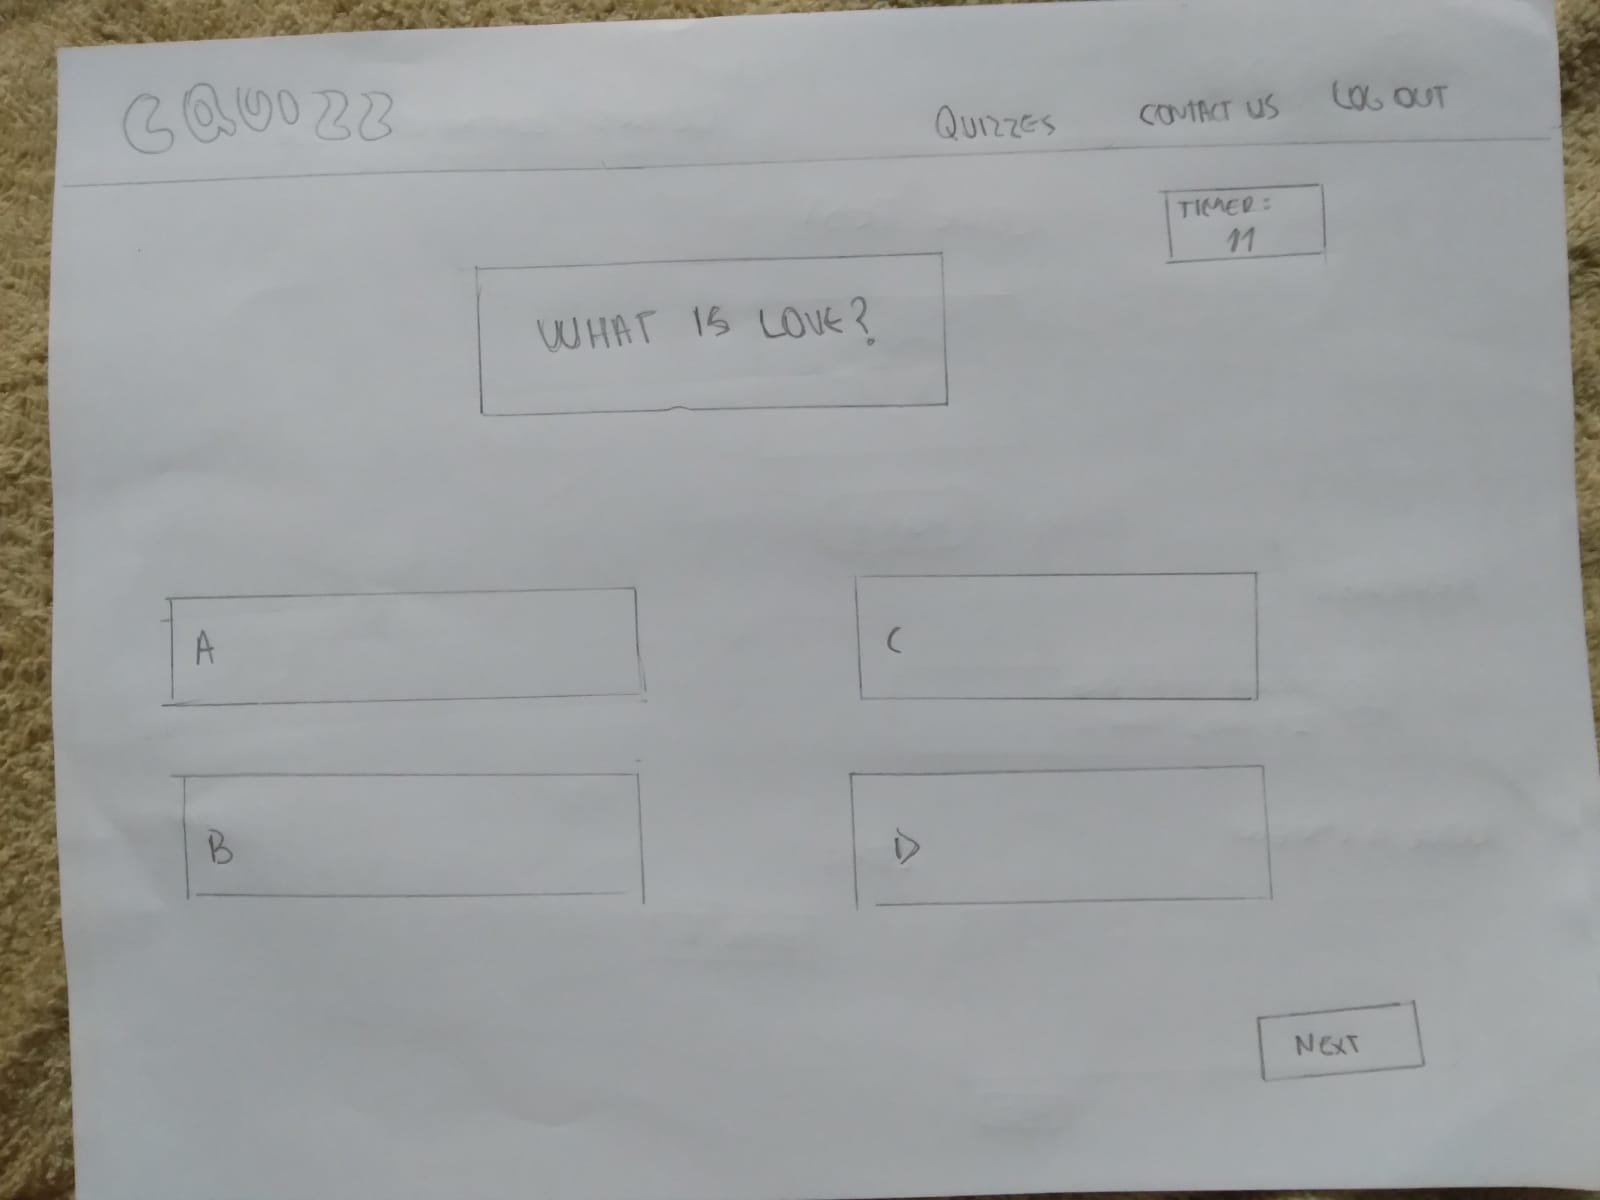 QUIZZES CONTACT US LOG OUT
TIMER:
11
WHAT IS LOVE?
A
C
B
D
NEXT